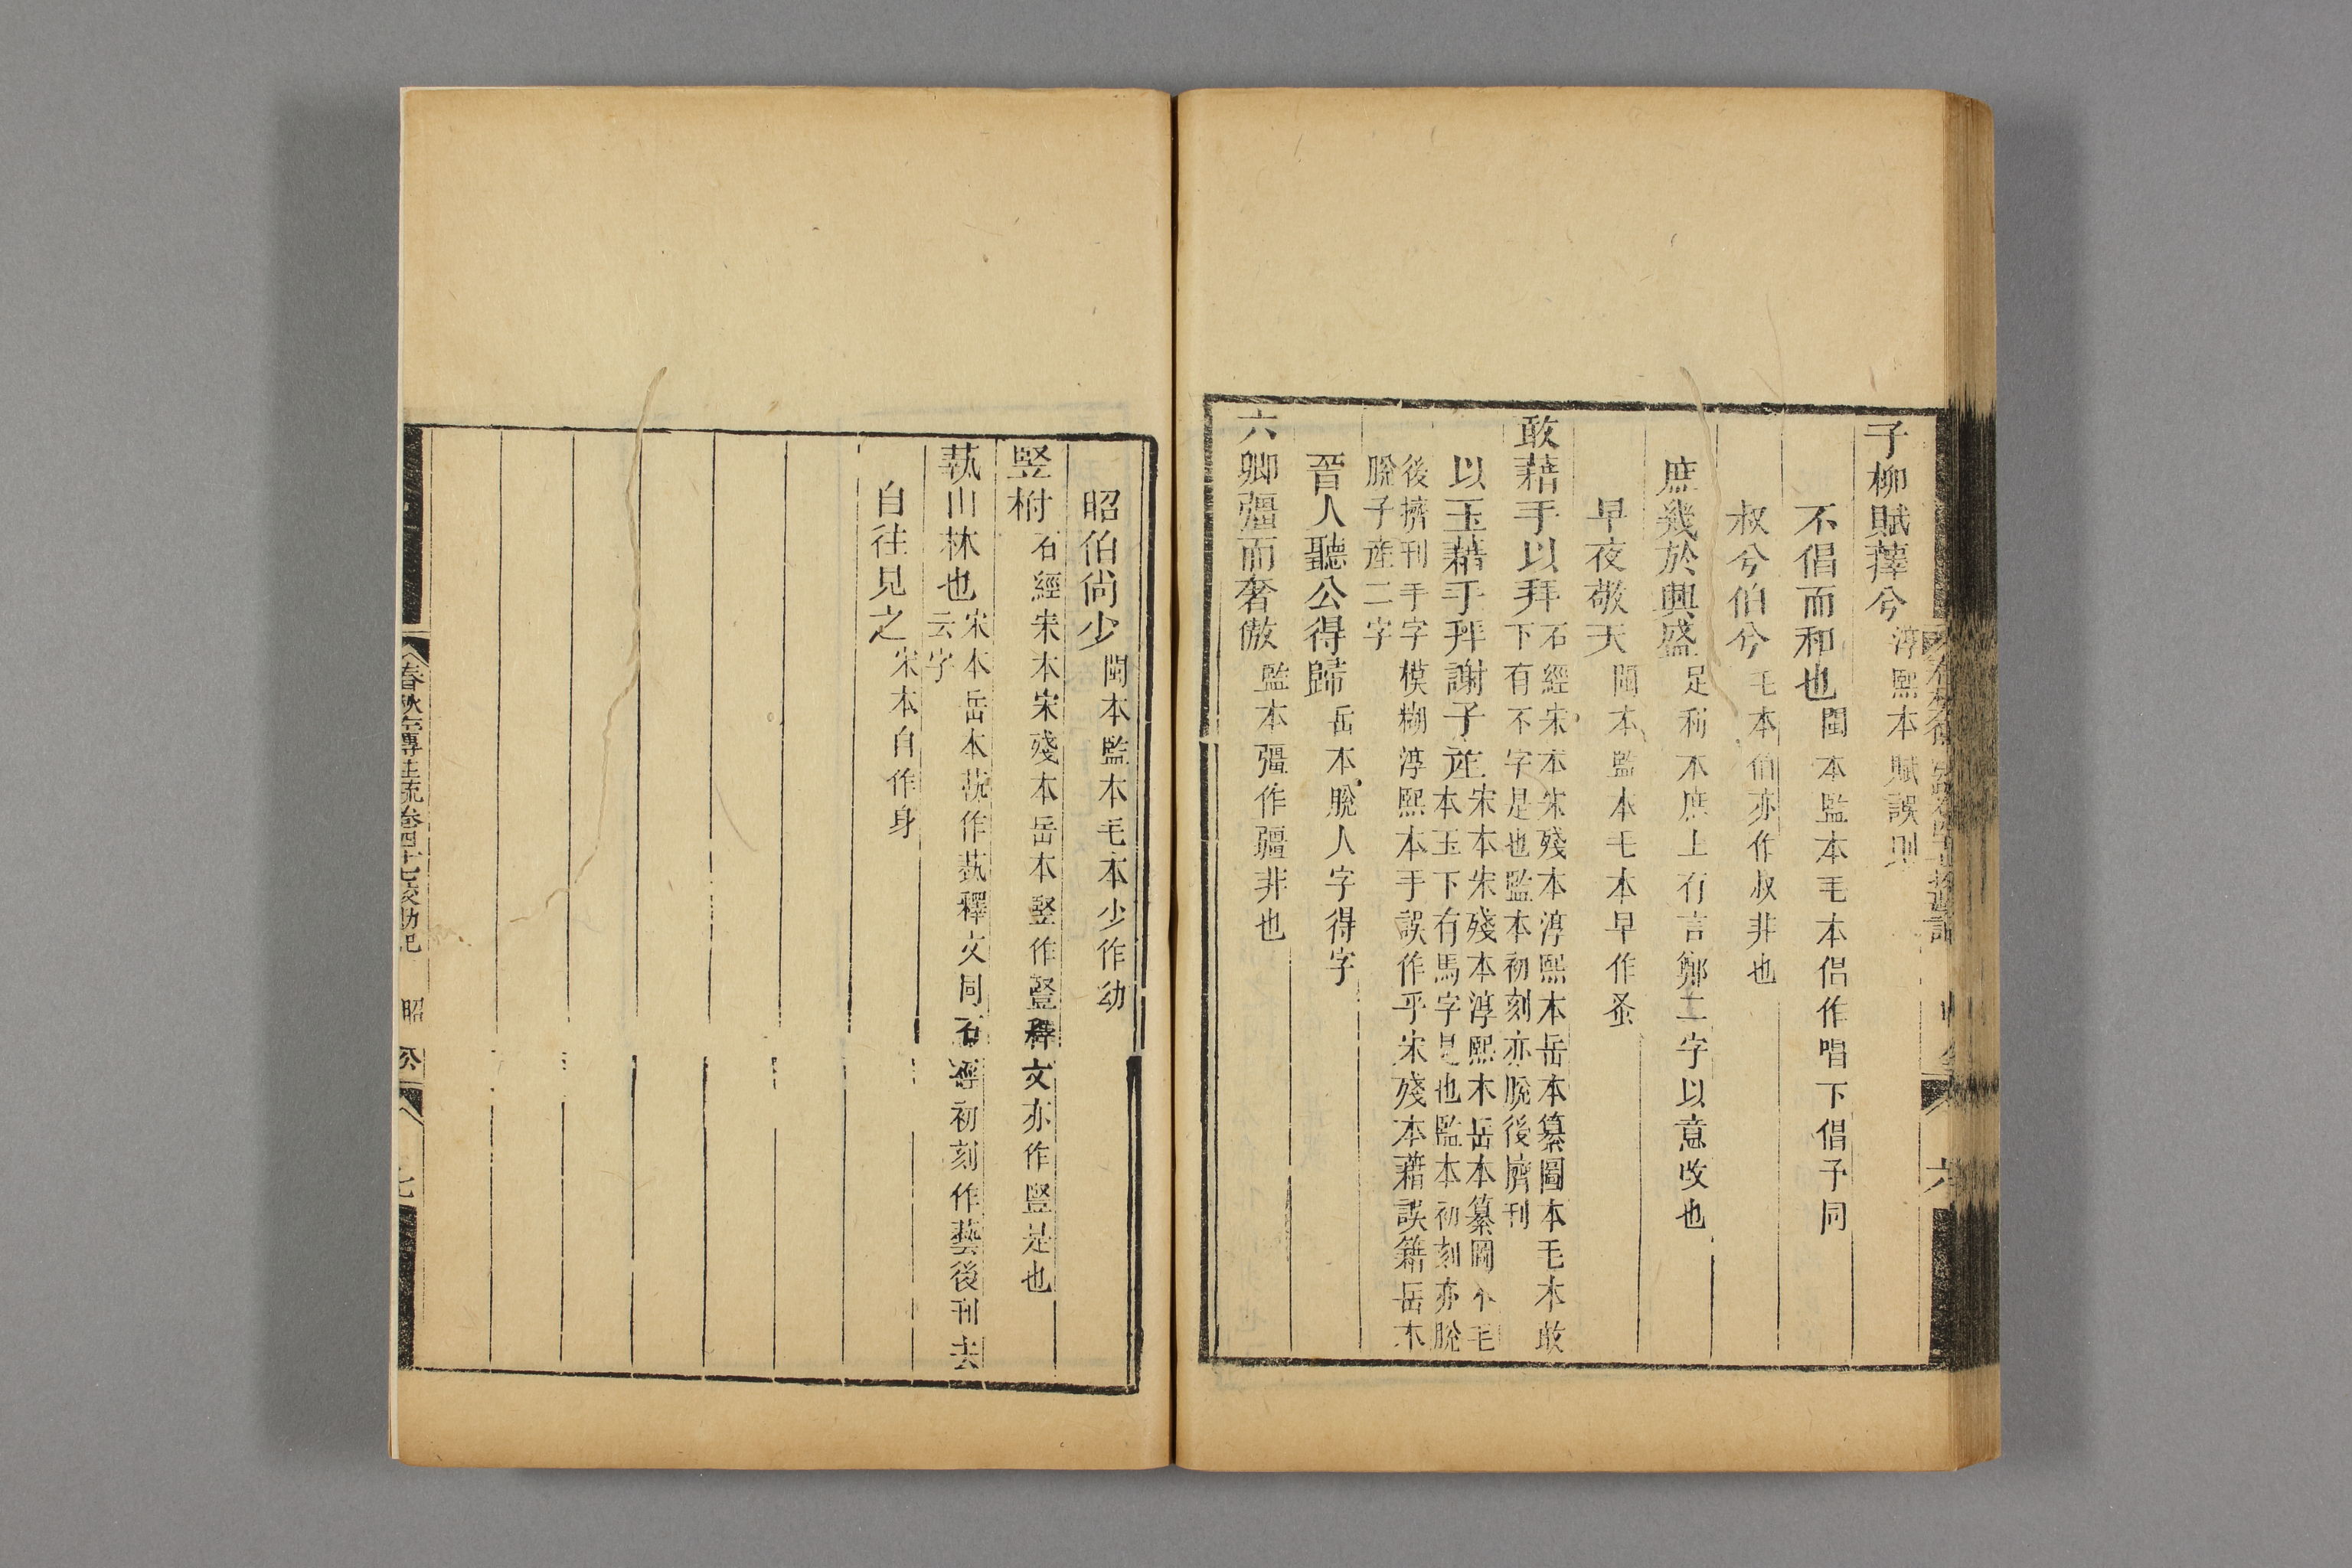 子柳賦蘀兮淳熙本賦誤則
不倡而和也閩本監本毛本倡作唱下倡予同
叔兮伯兮毛本伯亦作叔非也
庶幾於興盛足利本庶上有言鄭二字以意改也
早夜敬天閩本監本毛本早作蚤
敢藉手以拜石經宋本宋殘本淳熙本岳本纂圖本毛本敢
下有不字是也監本初刻亦脫後擠刊
以玉藉手拜謝子產宋本宋殘本淳熙本岳本纂圖本毛
本玉下有馬字是也監本初刻亦脫
後擠刊手字模糊淳熙本手誤作乎宋殘本藉誤籍岳本
脫子產二字
晉人聽公得歸岳本脫人字得字
六卿彊而奢傲監本彊作疆非也
昭伯尚少閩本監本毛本少作幼
竪柎石經宋本宋殘本岳本竪作豎釋文亦作豎是也
蓺山林也宋本岳本蓺作蓺釋文同石經初刻作藝後刊去
云字
自往見之宋本自作身
春秋左傳注疏卷四十七校勘記 昭公 七
六